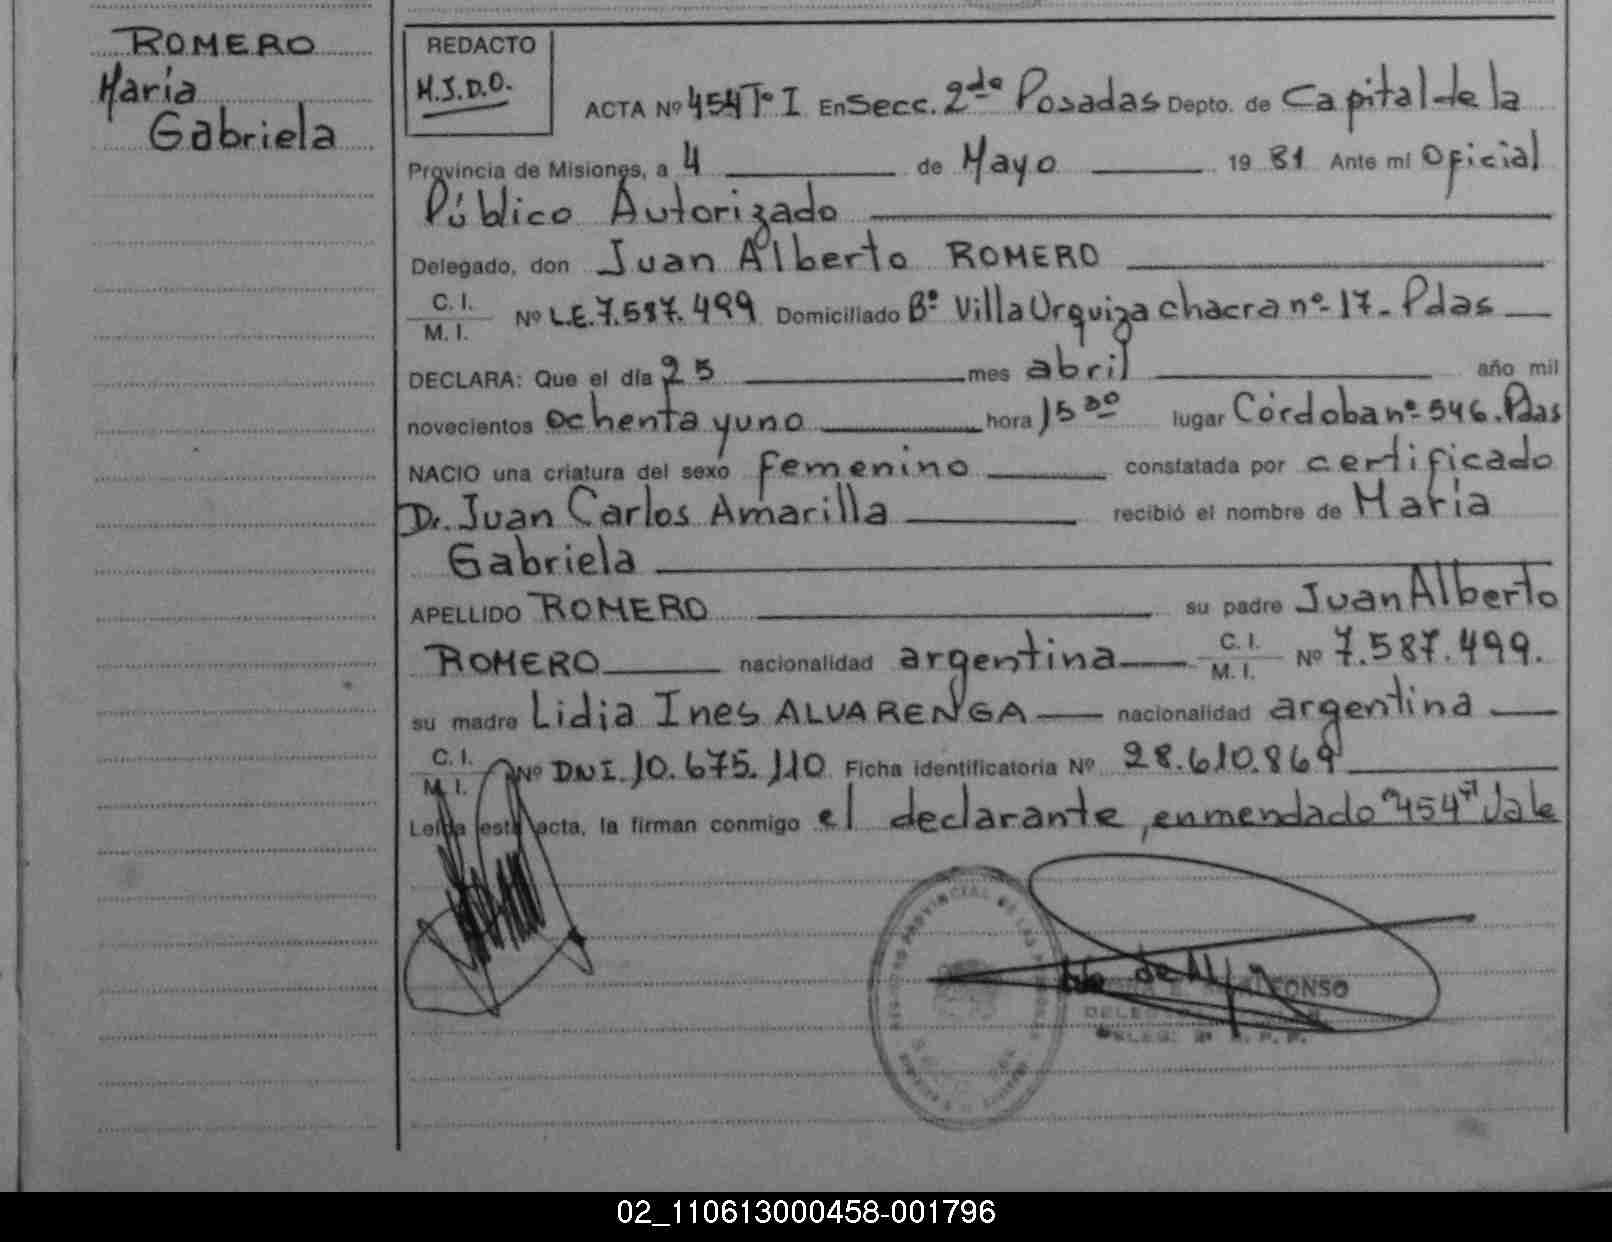 ROMERO
María
Gabriela
REDACTO
M.J.D.O.
ACTA Nº 454 Tº I En Secc. 2da Posadas Depto. de Capital de la
Provincia de Misiones, a 4 de Mayo 1981 Ante mí Oficial
Público Autorizado
Delegado, don Juan Alberto ROMERO
C. I.
M. I.
Nº L.E. 7.587.499 Domiciliado Bº Villa Urquiza chacra nº 17 - Pdas
DECLARA: Que el día 25 mes abril año mil
novecientos ochenta y uno hora 15 30 lugar Córdoba nº 546. Pdas
NACIO una criatura del sexo femenino constatada por certificado
Dr. Juan Carlos Amarilla recibió el nombre de María
Gabriela
APELLIDO ROMERO su padre Juan Alberto
ROMERO nacionalidad argentina C. I. M. I. Nº 7.587.499.
su madre Lidia Ines ALVARENGA nacionalidad argentina
C. I.
M. I.
Nº DNI. 10.675.110 Ficha identificatoria Nº 28.610.869
Leída esta acta, la firman conmigo el declarante, enmendado "454" Vale
02_110613000458-001796